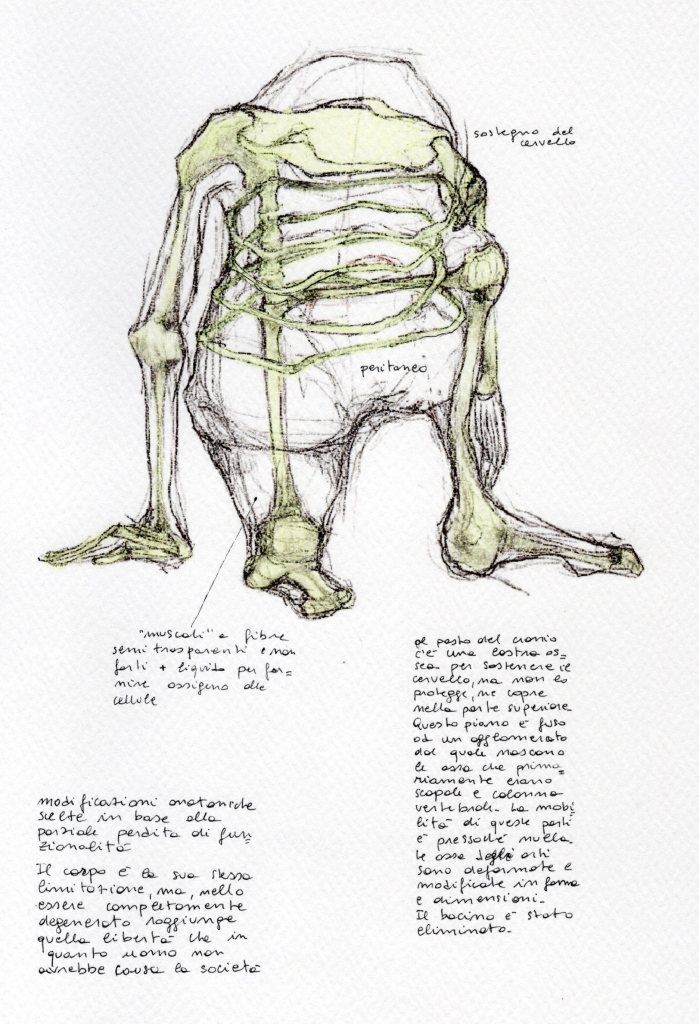 sostegno del
cervello
peritoneo
"muscoli" a fibre
semitrasparenti e non
forti + liquido per for=
nire ossigeno alle
cellule
al posto del cranio
c'è una lastra os=
sea per sostenere il
cervello, ma non lo
protegge, ne copre
nella parte superiore
Questo piano è fuso
ad un agglomerato
dal quale nascono
le ossa che prima=
riamente erano
scapole e colonna
vertebrale. La mobi
lità di queste parti
è pressoché nulla.
Le ossa degli arti
sono deformate e
modificate in forma
e dimensioni.
Il bacino è stato
eliminato.
modificazioni anatomiche
scelte in base alla
parziale perdita di fun=
zionalità
Il corpo è la sua stessa
limitazione, ma, nello
essere completamente
degenerato raggiunge
quella libertà che in
quanto uomo non
avrebbe causa la società